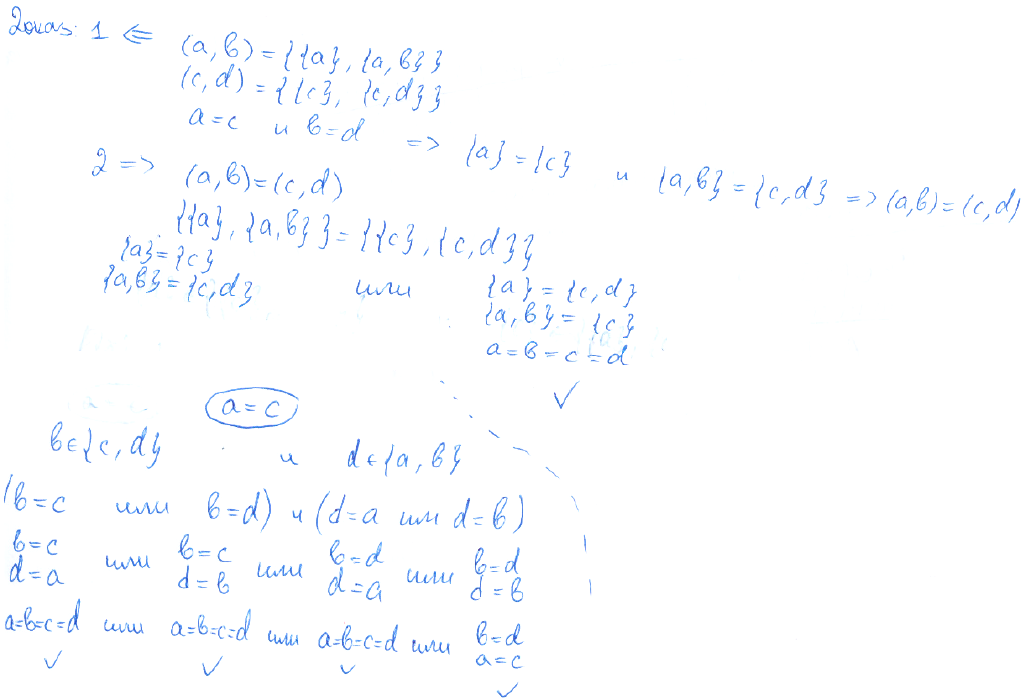 Доказ: 1 <= (a, b) = {{a}, {a, b}}
(c, d) = {{c}, {c, d}}
a = c и b = d => {a} = {c} и {a, b} = {c, d} => (a, b) = (c, d)
2 => (a, b) = (c, d)
{{a}, {a, b}} = {{c}, {c, d}}
{a} = {c}
{a, b} = {c, d} или {a} = {c, d}
{a, b} = {c}
a = b = c = d
✓
a = c
b ∈ {c, d} и d ∈ {a, b}
(b = c или b = d) и (d = a или d = b)
b = c или b = c или b = d или b = d
d = a d = b d = a d = b
a=b=c=d или a=b=c=d или a=b=c=d или b = d
a = c
✓ ✓ ✓ ✓